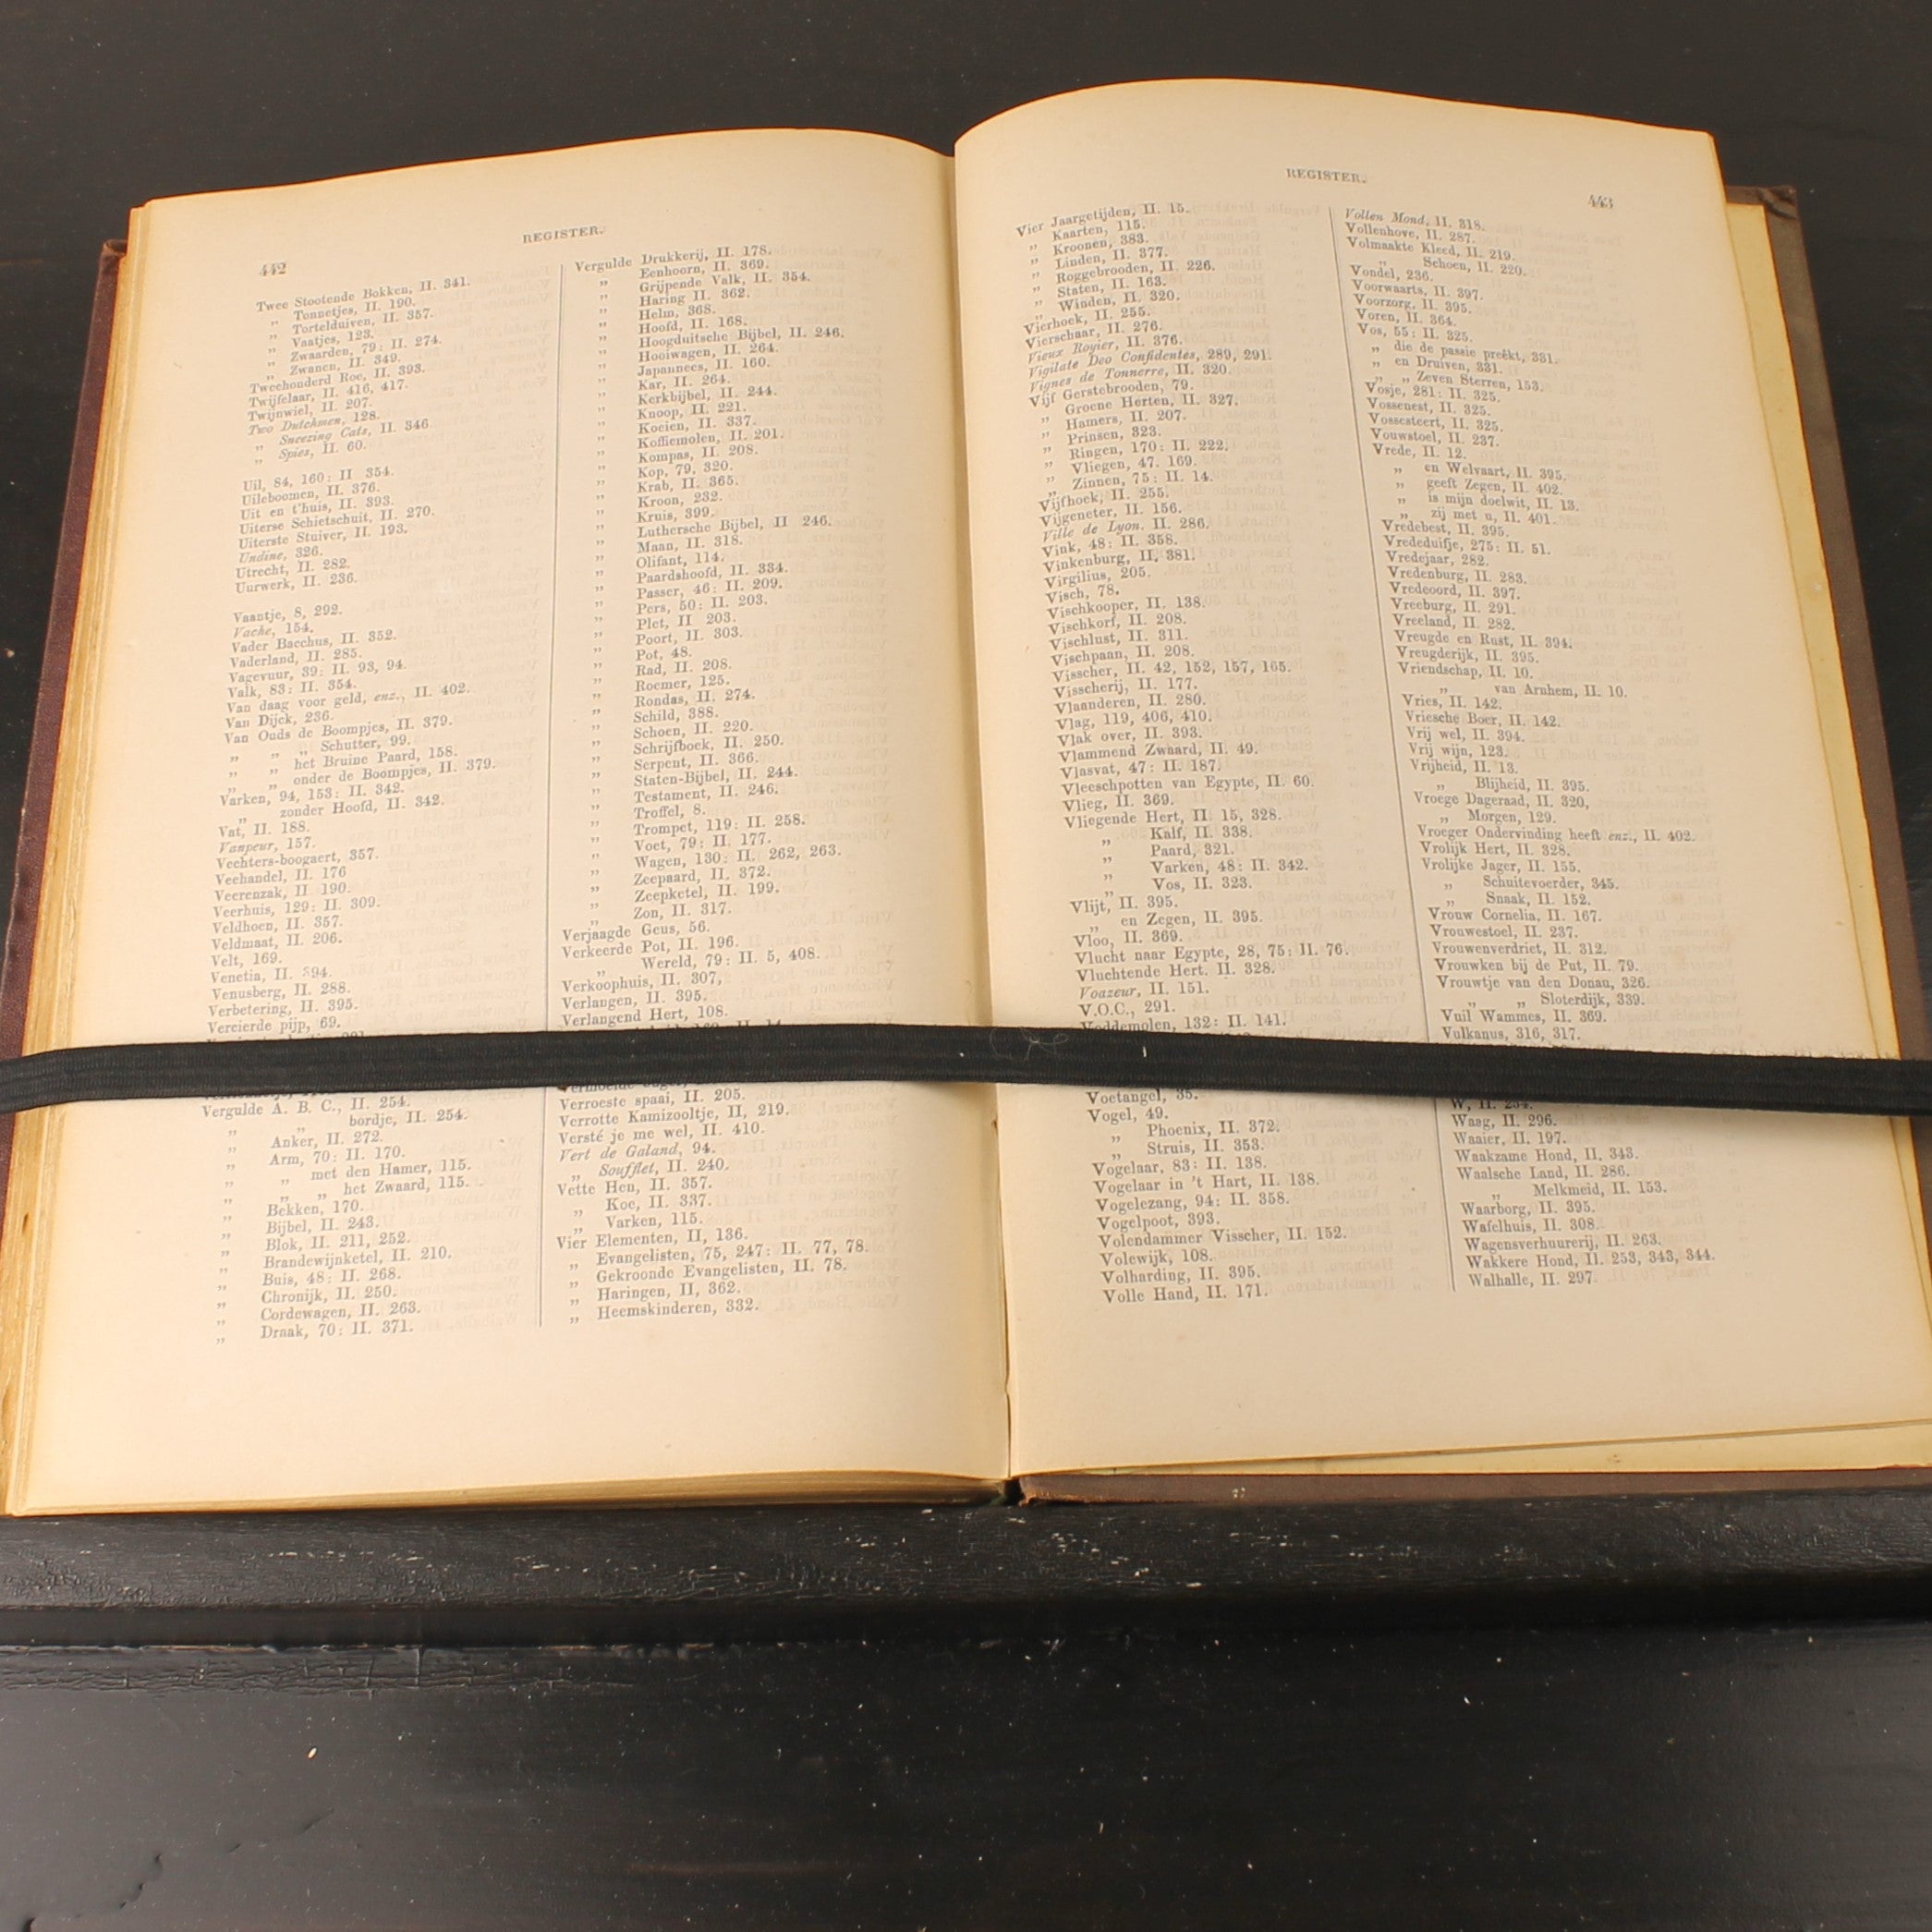 REGISTER.
442
Twee Stootende Bokken, II. 341.
„ Tonnetjes, II. 190.
„ Tortelduiven, II. 357.
„ Vaatjes, 123.
„ Zwaarden, 79: II. 274.
„ Zwanen, II. 349.
Tweehonderd Roe, II. 393.
Twijfelaar, II. 416, 417.
Twijnwiel, II. 207.
Two Dutchmen, 128.
„ Sneezing Cats, II. 346
„ Spies, II. 60.
Uil, 84, 160: II 354.
Uileboomen, II. 376.
Uit en t'huis, II. 393.
Uiterse Schietschuit, II. 270.
Uiterste Stuiver, II. 193.
Undine, 326.
Utrecht, II. 282.
Uurwerk, II. 236.
Vaantje, 8, 292.
Vache, 154.
Vader Bacchus, II. 352.
Vaderland, II. 285.
Vagevuur, 39: II. 93, 94.
Valk, 83: II. 354.
Van daag voor geld, enz., II. 402.
Van Dijck, 236.
Van Ouds de Boompjes, II. 379.
„ „ Schutter, 99.
„ „ het Bruine Paard, 158.
„ „ onder de Boompjes, II. 379.
Varken, 94, 153: II. 342.
„ zonder Hoofd, II. 342.
Vat, II. 188.
Vanpeur, 157.
Vechters-boogaert, 357.
Veehandel, II. 176
Veerenzak, II 190.
Veerhuis, 129: II. 309.
Veldhoen, II. 357.
Veldmaat, II. 206.
Velt, 169.
Venetia, II. 394.
Venusberg, II. 288.
Verbetering, II. 395.
Vercierde pijp, 69.
Vergulde A. B. C., II. 254.
„ „ bordje, II. 254.
„ Anker, II. 272.
„ Arm, 70: II. 170.
„ „ met den Hamer, 115.
„ „ „ het Zwaard, 115.
„ Bekken, 170.
„ Bijbel, II. 243.
„ Blok, II. 211, 252.
„ Brandewijnketel, II. 210.
„ Buis, 48: II. 268.
„ Chronijk, II. 250.
„ Cordewagen, II. 263.
„ Draak, 70: II. 371.
Vergulde Drukkerij, II. 178.
„ Eenhoorn, II. 369.
„ Grijpende Valk, II. 354.
„ Haring II. 362.
„ Helm, 368.
„ Hoofd, II. 168.
„ Hoogduitsche Bijbel, II. 246.
„ Hooiwagen, II. 264.
„ Japannees, II. 160.
„ Kar, II. 264.
„ Kerkbijbel, II. 244.
„ Knoop, II. 221.
„ Koeien, II. 337.
„ Koffiemolen, II. 201.
„ Kompas, II. 208.
„ Kop, 79, 320.
„ Krab, II. 365.
„ Kroon, 232.
„ Kruis, 399.
„ Luthersche Bijbel, II 246.
„ Maan, II. 318.
„ Olifant, 114.
„ Paardshoofd, II. 334.
„ Passer, 46: II. 209.
„ Pers, 50: II. 203.
„ Plet, II 203.
„ Poort, II. 303.
„ Pot, 48.
„ Rad, II. 208.
„ Roemer, 125.
„ Rondas, II. 274.
„ Schild, 388.
„ Schoen, II. 220.
„ Schrijfboek, II. 250.
„ Serpent, II. 366.
„ Staten-Bijbel, II. 244.
„ Testament, II. 246.
„ Troffel, 8.
„ Trompet, 119: II. 258.
„ Voet, 79: II. 177.
„ Wagen, 130: II. 262, 263.
„ Zeepaard, II. 372.
„ Zeepketel, II. 199.
„ Zon, II. 317.
Verjaagde Geus, 56.
Verkeerde Pot, II. 196.
„ Wereld, 79: II. 5, 408.
Verkoophuis, II. 307,
Verlangen, II. 395.
Verlangend Hert, 108.
Verroeste spaai, II. 205.
Verrotte Kamizooltje, II, 219.
Versté je me wel, II. 410.
Vert de Galand, 94.
„ Soufflet, II. 240.
Vette Hen, II. 357.
„ Koe, II. 337.
„ Varken, 115.
Vier Elementen, II, 136.
„ Evangelisten, 75, 247: II. 77, 78.
„ Gekroonde Evangelisten, II. 78.
„ Haringen, II, 362.
„ Heemskinderen, 332.
REGISTER.
443
Vier Jaargetijden, II. 15.
„ Kaarten, 115.
„ Kroonen, 383.
„ Linden, II. 377.
„ Roggebrooden, II. 226.
„ Staten, II. 163.
„ Winden, II. 320.
Vierhoek, II. 255.
Vierschaar, II. 276.
Vieux Royier, II. 376.
Vigilate Deo Confidentes, 289, 291.
Vignes de Tonnerre, II. 320.
Vijf Gerstebrooden, 79.
„ Groene Herten, II. 327.
„ Hamers, II. 207.
„ Prinsen, 323.
„ Ringen, 170: II. 222.
„ Vliegen, 47. 169.
„ Zinnen, 75: II. 14.
Vijfhoek, II. 255.
Vijgeneter, II. 156.
Ville de Lyon. II. 286.
Vink, 48: II. 358.
Vinkenburg, II, 381.
Virgilius, 205.
Visch, 78.
Vischkooper, II. 138.
Vischkorf, II. 208.
Vischlust, II. 311.
Vischpaan, II. 208.
Visscher, II. 42, 152, 157, 165.
Visscherij, II. 177.
Vlaanderen, II. 280.
Vlag, 119, 406, 410.
Vlak over, II. 393.
Vlammend Zwaard, II. 49.
Vlasvat, 47: II. 187.
Vleeschpotten van Egypte, II. 60.
Vlieg, II. 369.
Vliegende Hert, II. 15, 328.
„ Kalf, II. 338.
„ Paard, 321.
„ Varken, 48: II. 342.
„ Vos, II. 323.
Vlijt, II. 395.
„ en Zegen, II. 395.
Vloo, II. 369.
Vlucht naar Egypte, 28, 75: II. 76.
Vluchtende Hert. II. 328.
Voazeur, II. 151.
V.O.C., 291.
Voddemolen, 132: II. 141.
Voetangel, 35.
Vogel, 49.
„ Phoenix, II. 372.
„ Struis, II. 353.
Vogelaar, 83: II. 138.
Vogelaar in 't Hart, II. 138.
Vogelezang, 94: II. 358.
Vogelpoot, 393.
Volendammer Visscher, II. 152.
Volewijk, 108.
Volharding, II. 395.
Volle Hand, II. 171.
Vollen Mond, II. 318.
Vollenhove, II. 287.
Volmaakte Kleed, II. 219.
„ Schoen, II. 220.
Vondel, 236.
Voorwaarts, II. 397.
Voorzorg, II. 395.
Voren, II. 364.
Vos, 55: II. 325.
„ die de passie preêkt, 331.
„ en Druiven, 331.
„ „ Zeven Sterren, 153.
Vosje, 281: II. 325.
Vossenest, II. 325.
Vossesteert, II. 325.
Vouwstoel, II. 237.
Vrede, II. 12.
„ en Welvaart, II. 395.
„ geeft Zegen, II. 402.
„ is mijn doelwit, II. 13.
„ zij met u, II. 401.
Vredebest, II. 395.
Vrededuifje, 275: II. 51.
Vredejaar, 282.
Vredenburg, II. 283.
Vredeoord, II. 397.
Vreeburg, II. 291.
Vreeland, II. 282.
Vreugde en Rust, II. 394.
Vreugderijk, II. 395.
Vriendschap, II. 10.
„ van Arnhem, II. 10.
Vries, II. 142.
Vriesche Boer, II. 142.
Vrij wel, II. 394.
Vrij wijn, 123.
Vrijheid, II. 13.
„ Blijheid, II. 395.
Vroege Dageraad, II. 320,
„ Morgen, 129.
Vroeger Ondervinding heeft enz., II. 402.
Vrolijk Hert, II. 328.
Vrolijke Jager, II. 155.
„ Schuitevoerder, 345.
„ Snaak, II. 152.
Vrouw Cornelia, II. 167.
Vrouwestoel, II. 237.
Vrouwenverdriet, II. 312.
Vrouwken bij de Put, II. 79.
Vrouwtje van den Donau, 326.
„ „ Sloterdijk, 339.
Vuil Wammes, II. 369.
Vulkanus, 316, 317.
W, II. 254.
Waag, II. 296.
Waaier, II. 197.
Waakzame Hond, II. 343.
Waalsche Land, II. 286.
„ Melkmeid, II. 153.
Waarborg, II. 395.
Wafelhuis, II. 308.
Wagensverhuurerij, II. 263.
Wakkere Hond, II. 253, 343, 344.
Walhalle, II. 297.